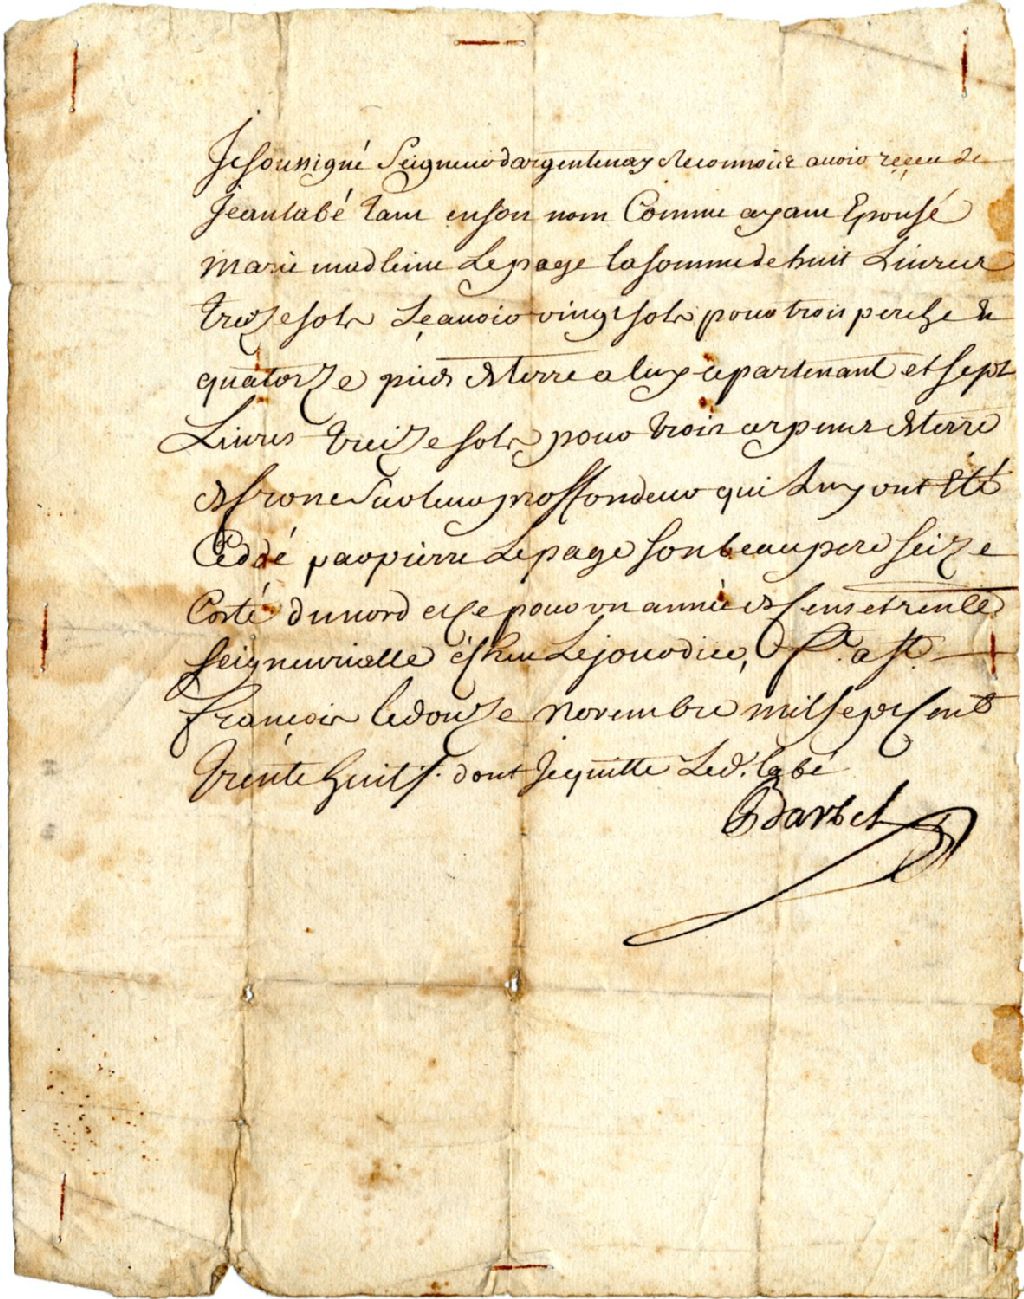 Je soussigné Seigneur dargentenay Reconnois avoir reçeu de
Jean labé tant en son nom Comme ayant Epousé
marie madleine Lepage la somme de huit Livres
treize sols Sçavoir vingt sols pour trois perche &
quatorze pieds de terre a luy apartenant et sept
Livres treize sols pour trois arpents de terre
de front sur leur proffondeur qui Luy ont Eté
Cédé par pierre Lepage son beau pere scize
Costé du nord et ce pour un année de Cens et rente
seigneurialle écheu Lejourdier, St.
françois le douze novembre mil sept Cent
trente huit. dont Jequitte Led. labé
Barbel